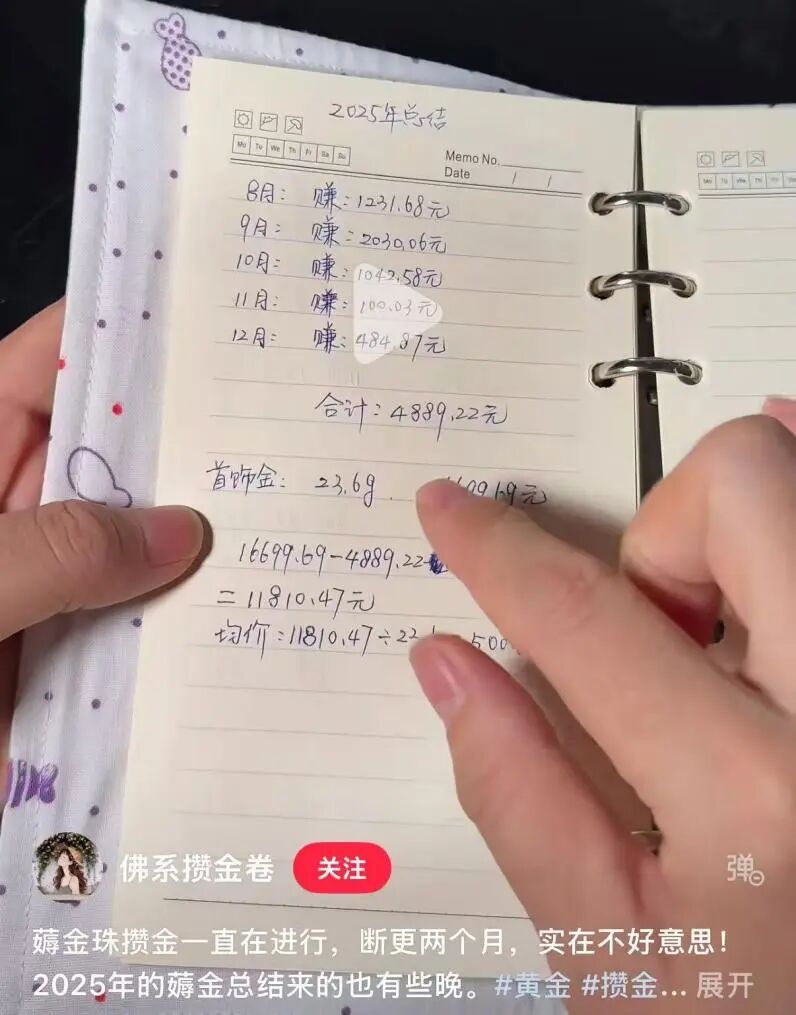 2025年总结
Mo Tu We Th Fr Sa Su
Memo No.
Date / /
Mo Tu We Th
8月: 赚:1231.68元
9月: 赚:2030.06元
10月: 赚:1042.58元
11月: 赚:100.03元
12月: 赚:484.87元
合计:4889.22元
首饰金: 23.6g 699.69元
16699.69-4889.22
=11810.47元
均价:11810.47÷ 500
佛系攒金卷 关注
弹
薅金珠攒金一直在进行，断更两个月，实在不好意思！
2025年的薅金总结来的也有些晚。#黄金 #攒金... 展开